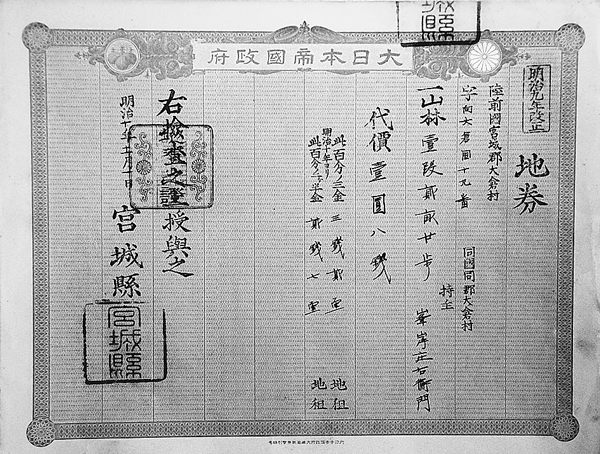 大日本帝國政府
宮城縣
明治九年改正
地券
陸前國宮城郡大倉村
字向大倉十九番
一山林壹段貳畝廿歩
同國同郡大倉村
持主
峯岸庄右衛門
代價壹圓八錢
此百分ノ三金三錢貳厘 地租
明治十年ヨリ
此百分ノ二ヶ半金貳錢七厘 地租
右檢査之證授與之
明治十年
宮城縣
宮城縣